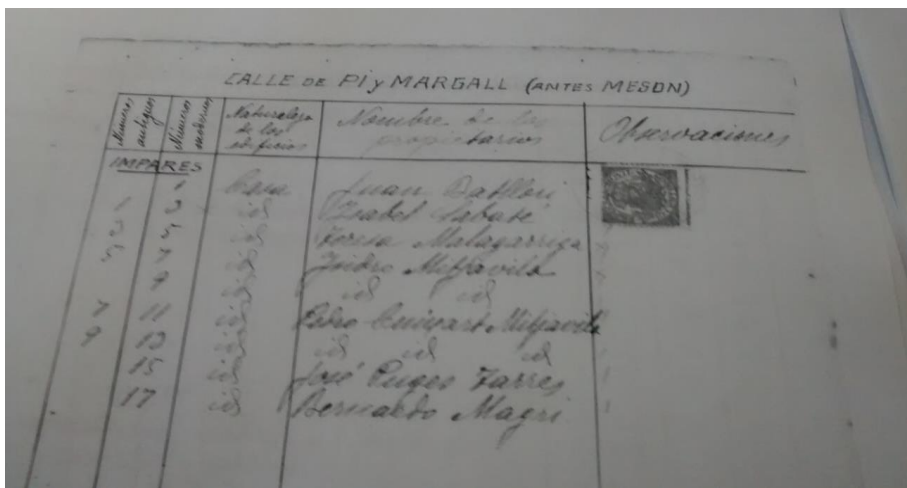 CALLE DE PI y MARGALL (ANTES MESON)
Numeros antiguos Numeros modernos Naturaleza de los edificios Nombre de los propietarios Observaciones
IMPARES
1 Casa Juan Batllori
1 3 id Isabel Sabaté
3 5 id Teresa Malagarriga
5 7 id Isidro Mitjavila
9 id id id
7 11 id Pedro Guixart Mitjavila
9 13 id id id id
15 id José Puges Farrés
17 id Bernardo Magri